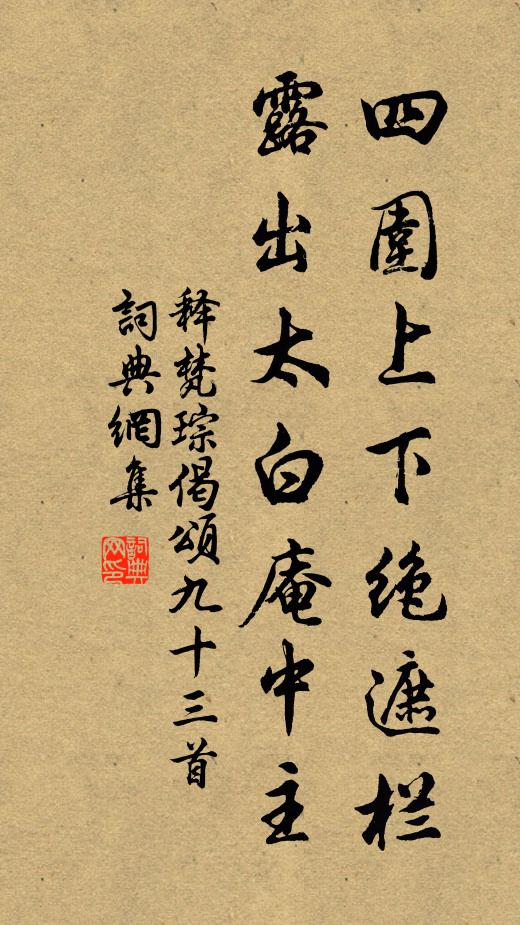 四圍上下絶遮栏
露出太白庵中主
释梵琮偈頌九十三首
詞典網集
詞典网印